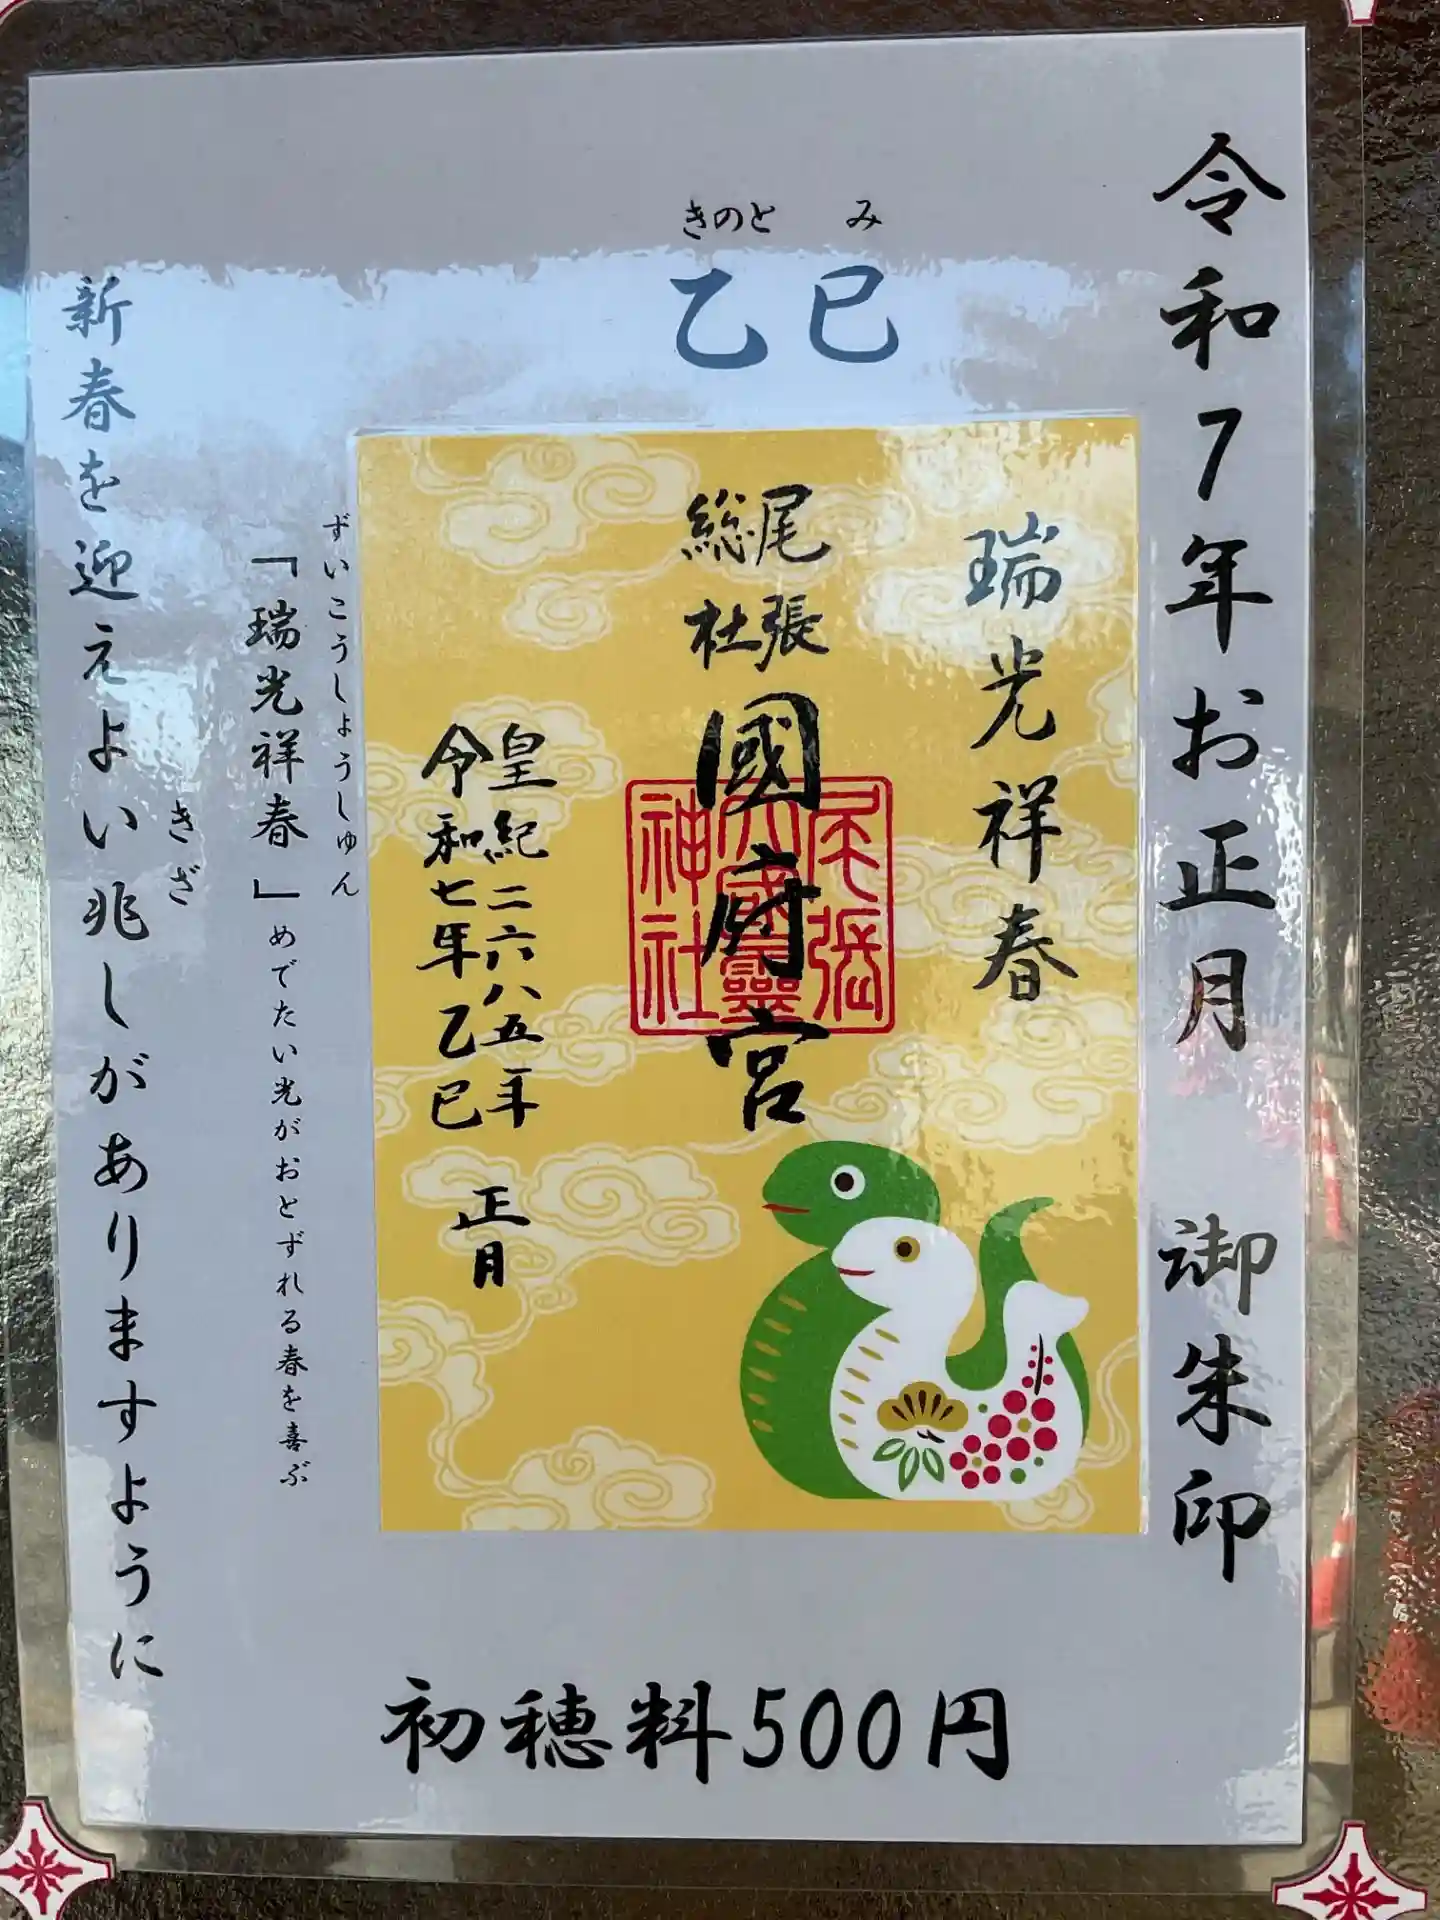 令和7年お正月　御朱印
きのと　み
乙巳
瑞光祥春
尾張
総社
國府宮
尾張
大國霊
神社
皇紀二六八五年
令和七年乙巳
正月
ずいこうしょうしゅん
「瑞光祥春」めでたい光がおとずれる春を喜ぶ
きざ
新春を迎えよい兆しがありますように
初穂料500円